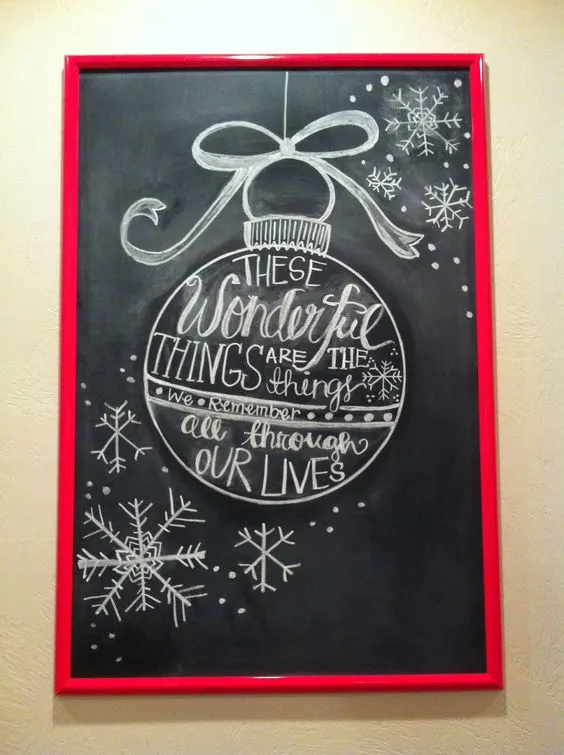 THESE
Wonderful
THINGS ARE THE
things
We Remember
all through
OUR LIVES